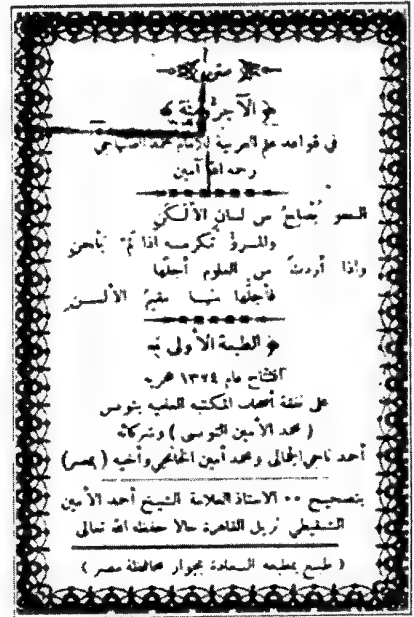 متن
﴿ الآجرومية ﴾
في قواعد علم العربية للامام محمد الصنهاجي
رحمه الله آمين
النحو يُصلح من لسان الألكن
والمرءُ تكرمه اذا لم يلحن
واذا أردتَ من العلوم أجلّها
فأجلّها منها مقيمُ الألسن
﴿ الطبعة الأولى ﴾
افتتاح عام ١٣٢٤ هجرية
على نفقة أصحاب المكتبة العلمية بتونس
( محمد الأمين التونسى ) وشركائه
أحمد ناجي الجمالى ومحمد أمين الخانجي وأخيه ( بمصر )
بتصحيح ٠٠ الاستاذ العلامة الشيخ أحمد الأمين
الشنقيطي نزيل القاهرة حالا حفظه الله تعالى
( طبع بمطبعة السعادة بجوار محافظة مصر )